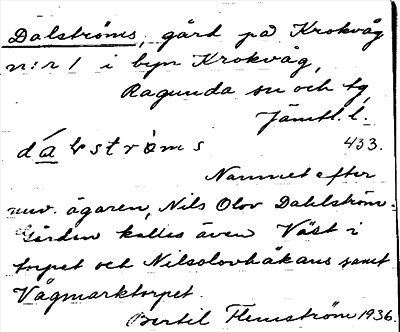 Dalströms, gård på Krokvåg
n:r 1 i byn Krokvåg,
Ragunda sn och tg,
Jämtl. l.
433.
Namnet efter
nuv. ägaren, Nils Olov Dahlström.
Gården kallas även Väst i
torpet och Nilsolovhåkans samt
Vågmarktorpet.
Bertil Flemström 1936.